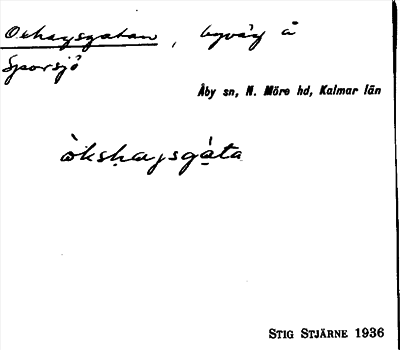 Oxhagsgatan, byväg å
Sporsjö
Åby sn, N. Möre hd, Kalmar län
òkshàgsgáta
STIG STJÄRNE 1936